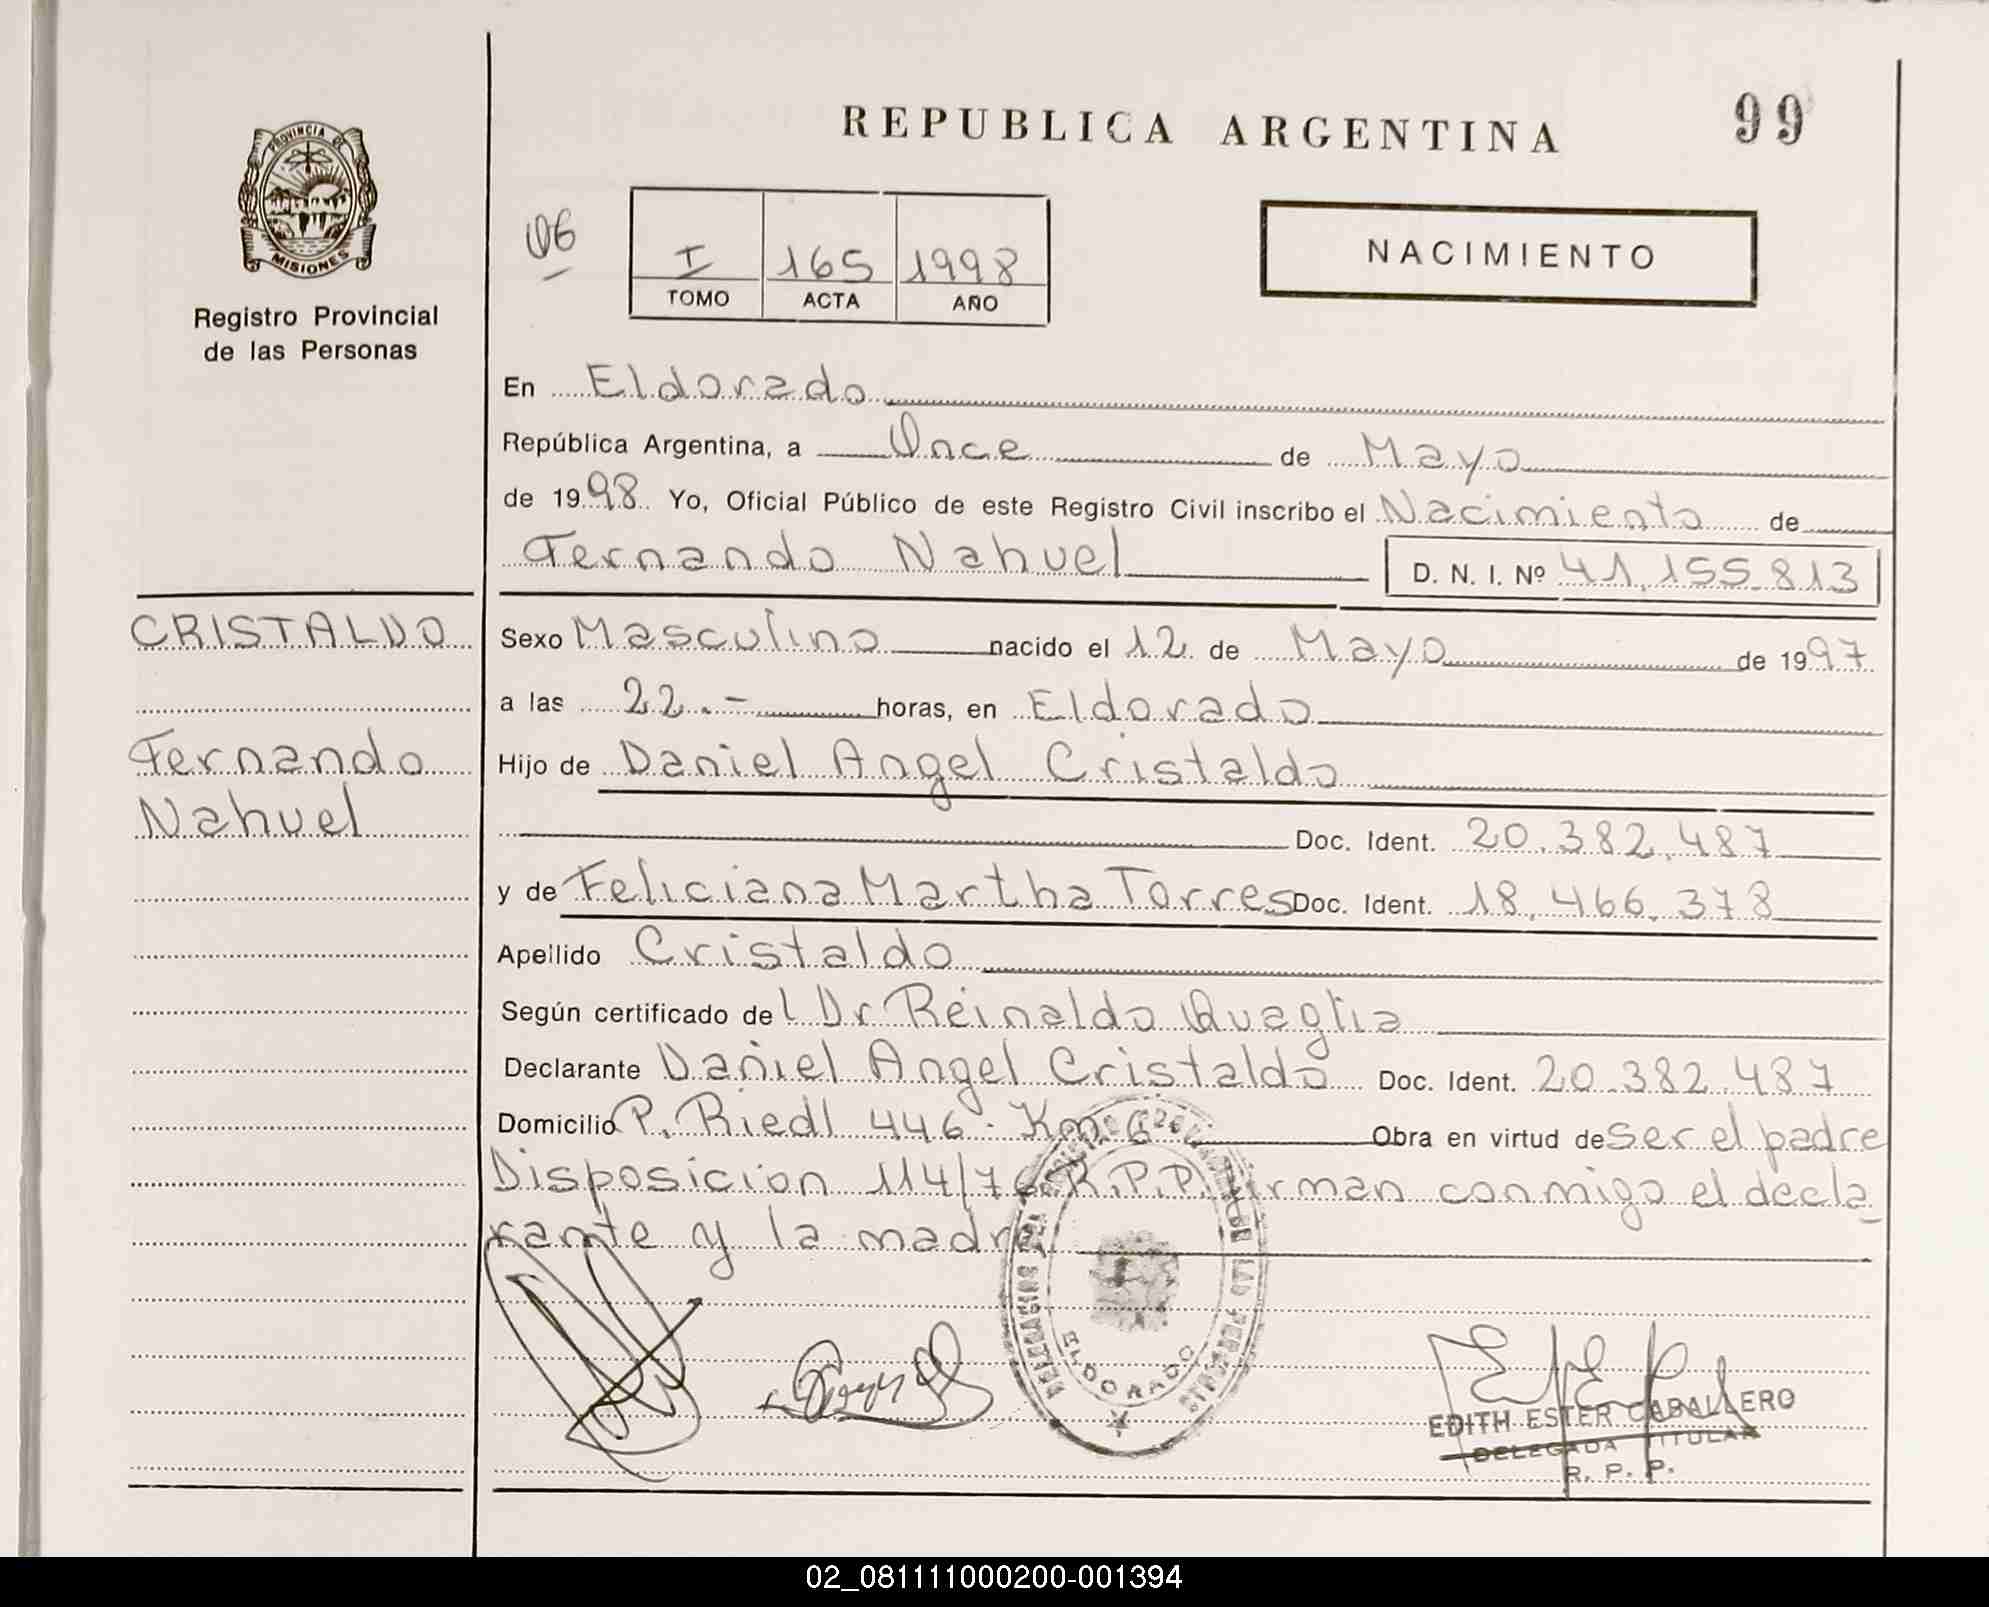 REPUBLICA ARGENTINA
99
PROVINCIA DE
MISIONES
Registro Provincial
de las Personas
06
I 165 1998
TOMO ACTA AÑO
NACIMIENTO
En Eldorado
República Argentina, a Once de Mayo
de 1998 Yo, Oficial Público de este Registro Civil inscribo el Nacimiento de
Fernando Nahuel D. N. I. Nº 41.155.813
CRISTALDO
Fernando
Nahuel
Sexo Masculino nacido el 12 de Mayo de 1997
a las 22.- horas, en Eldorado
Hijo de Daniel Angel Cristaldo
Doc. Ident. 20.382.487
y de Feliciana Martha Torres Doc. Ident. 18.466.378
Apellido Cristaldo
Según certificado del Dr Reinaldo Quaglia
Declarante Daniel Angel Cristaldo Doc. Ident. 20.382.487
Domicilio P. Riedl 446 - Km. 6 Obra en virtud de ser el padre
Disposicion 114/76 R.P.P. Firman conmigo el decla
rante y la madre.
ELDORADO
EDITH ESTER CABALLERO
DELEGADA TITULAR
R. P. P.
02_081111000200-001394